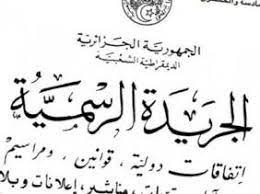 الجمهورية الجزائرية
الديمقراطية الشعبية
الجريدة الرسمية
اتفاقات دولية ، قوانين ، ومراسيم
مناشير ، إعلانات وبلا